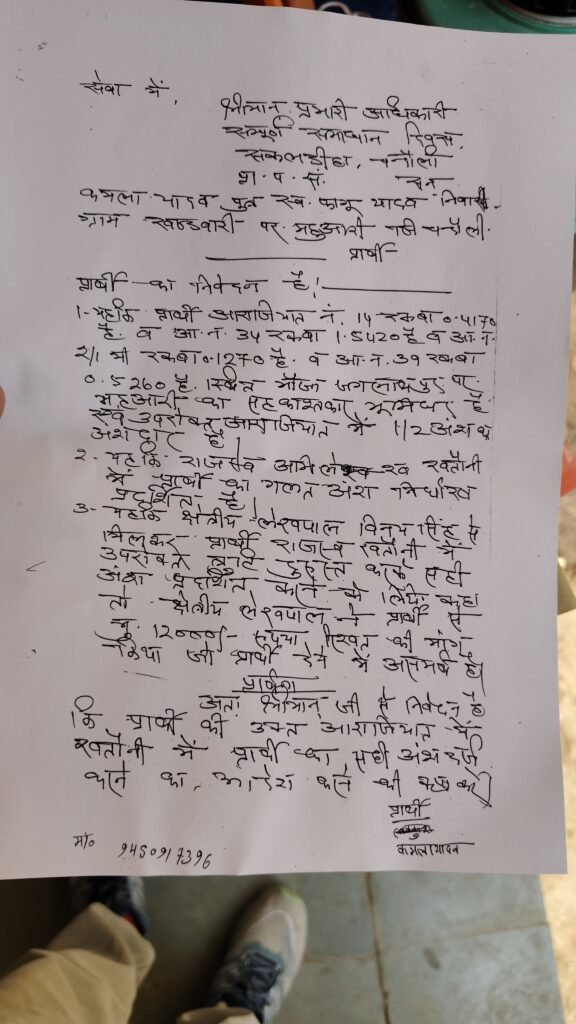 सेवा में,
श्रीमान प्रभारी अधिकारी
सम्पूर्ण समाधान दिवस,
सकलडीहा, चन्दौली
प्रा. प. सं. सन
कमला यादव पुत्र स्व. फागू यादव निवासी
ग्राम खण्डवारी पर. महुआरी चन्दौली.
प्रार्थी
प्रार्थी का निवेदन है!
1- यहकि प्रार्थी आराजियात नं. 14 रकबा 0.4170
है. व आ.न. 34 रकबा 1.5420 है व आ.न.
2/1 मी रकबा 0.1270 है. व आ.न. 39 रकबा
0.5260 है. स्थित मौजा जगन्नाथपुर पर.
महुआरी का सहकाश्तकार भूमिधर है.
एवं उपरोक्त आराजियात में 1/2 अंश का
अंश दार है!
2- यहकि राजस्व अभिलेख खतौनी
में प्रार्थी का गलत अंश निर्धारण
प्रदर्शित है!
3- यहकि क्षेत्रीय लेखपाल विनय सिंह से
मिलकर प्रार्थी राजस्व खतौनी में
उपरोक्त त्रुटि दुरुस्त करके सही
अंश प्रदर्शित करने के लिये कहा
तो क्षेत्रीय लेखपाल ने प्रार्थी से
मु. 12000/- रूपया रिश्वत की मांग
किया जो प्रार्थी देने में असमर्थ है।
प्रार्थना
अतः श्रीमान् जी से निवेदन है
कि प्रार्थी की उक्त आराजियात में
खतौनी में प्रार्थी का सही अंश दर्ज
करने का, आदेश करने की कृपा करें।
प्रार्थी
कमला यादव
मो० 9450917396